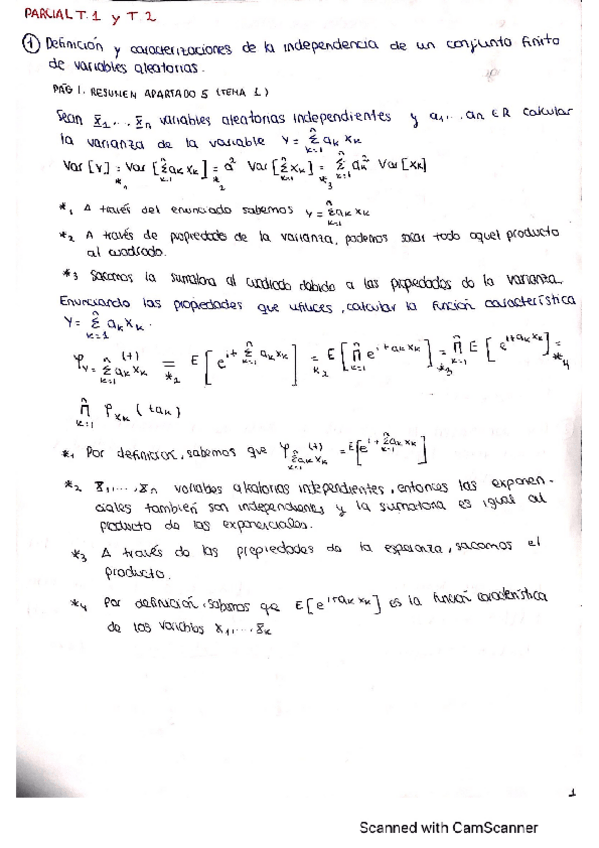 PARCIAL T.1 y T.2
① Definición y caracterizaciones de la independencia de un conjunto finito
de variables aleatorias.
PÁG 1. RESUMEN APARTADO 5 (TEMA 1)
Sean X̲1,...,X̲n variables aleatorias independientes y a1,...an ∈ R calcular
la varianza de la variable Y = Σ_{k=1}^{n} ak Xk
Var [Y] = Var [Σ_{k=1}^{n} ak Xk] = a² Var [Σ_{k=1}^{n} Xk] = Σ_{k=1}^{n} ak² Var [Xk]
*1 *2 *3
*1 A través del enunciado sabemos Y = Σ_{k=1}^{n} ak Xk
*2 A través de propiedades de la varianza, podemos sacar todo aquel producto
al cuadrado.
*3 Sacamos la sumatoria al cuadrado debido a las propiedades de la varianza.
Enunciando las propiedades que utilices, calcular la función característica
Y = Σ_{k=1}^{n} ak Xk.
φ_{Y = Σ_{k=1}^{n} ak Xk} (t) = E [e^{it Σ_{k=1}^{n} ak Xk}] = E [Π_{k=1}^{n} e^{itak Xk}] = Π_{k=1}^{n} E [e^{itak Xk}] =
*2 K2 *3 *4
Π_{k=1}^{n} φ_{Xk} (tak)
*1 Por definición, sabemos que φ_{Σ_{k=1}^{n} ak Xk} (t) = E[e^{it Σ_{k=1}^{n} ak Xk}]
*2 X̲1,...,X̲n variables aleatorias independientes, entonces las exponen-
ciales también son independientes y la sumatoria es igual al
producto de las exponenciales.
*3 A través de las propiedades de la esperanza, sacamos el
producto.
*4 Por definición, sabemos que E[e^{itak Xk}] es la función característica
de las variables X1,...X̲k
1
Scanned with CamScanner